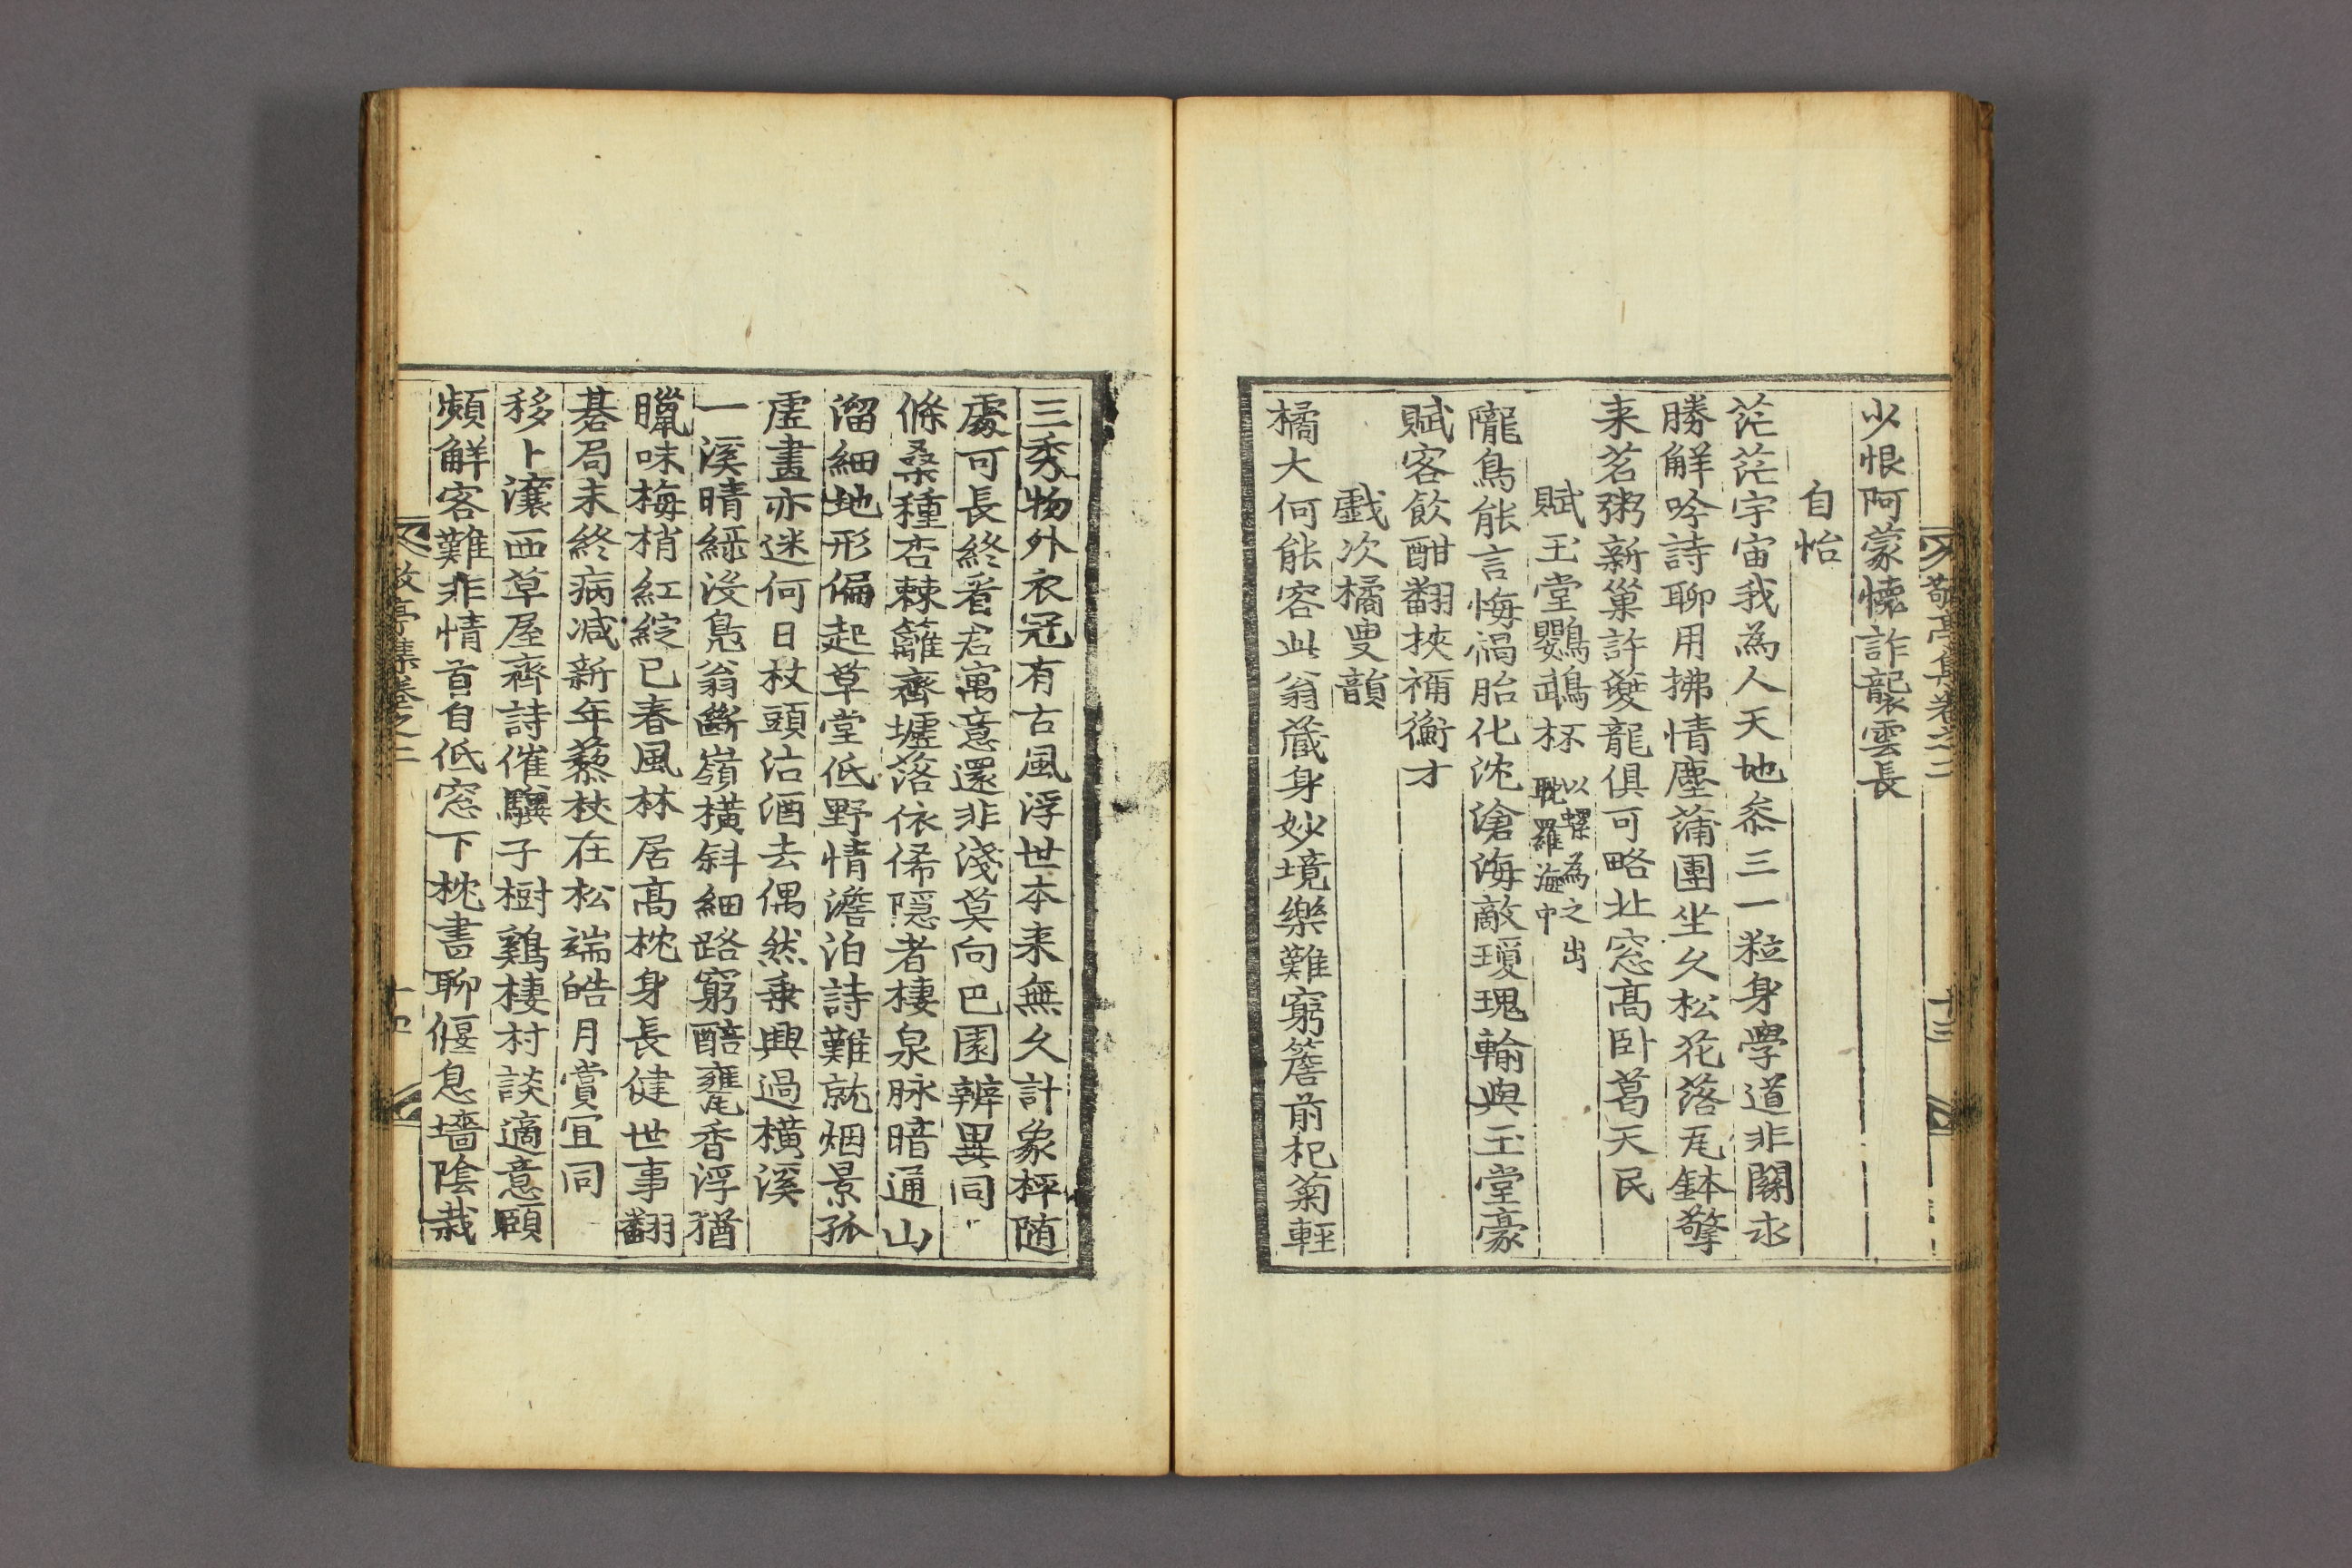 敬亭集卷之二
十三
少恨阿蒙懷詐襲雲長
自怡
茫茫宇宙我為人天地叅三一粒身學道非關求
勝解吟詩聊用拂情塵蒲團坐久松花落瓦鉢擎
来茗粥新巢許夔龍俱可略北窓高卧葛天民
賦玉堂鸚鵡杯以螺為之出
耽羅海中
隴鳥能言悔禍胎化沈滄海敵瓊瑰輸與玉堂豪
賦客飲酣翻挾禰衡才
戱次橘叟韻
橘大何能容此翁藏身妙境樂難窮簷前杞菊輕
三秀物外衣冠有古風浮世本来無久計象枰随
處可長終看君寓意還非淺莫向巴園辨異同
條桑種杏棘籬齊墟落依俙隠者棲泉脉暗通山
溜細地形偏起草堂低野情澹泊詩難就烟景孤
虛畫亦迷何日杖頭沽酒去偶然乗興過橫溪
一溪晴綠沒鳬翁斷嶺橫斜細路窮醅甕香浮猶
臘味梅梢紅綻已春風林居高枕身長健世事翻
碁局未終病减新年藜杖在松端皓月賞宜同
移卜瀼西草屋齊詩催驥子樹鷄棲村談適意頤
頻解客難非情首自低窓下枕書聊偃息墻陰栽
敬亭集卷之二
十四